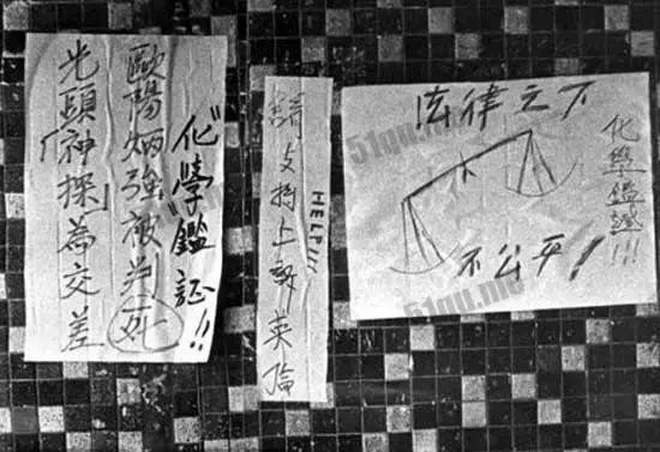 "化學"鑑証!!
歐陽炳強被判死
光頭「神探」為交差
HELP!!!
請支持上訴英倫
法律之下
不公平!
化學鑑!!!
51qu.me
51qu.me
51qu.me